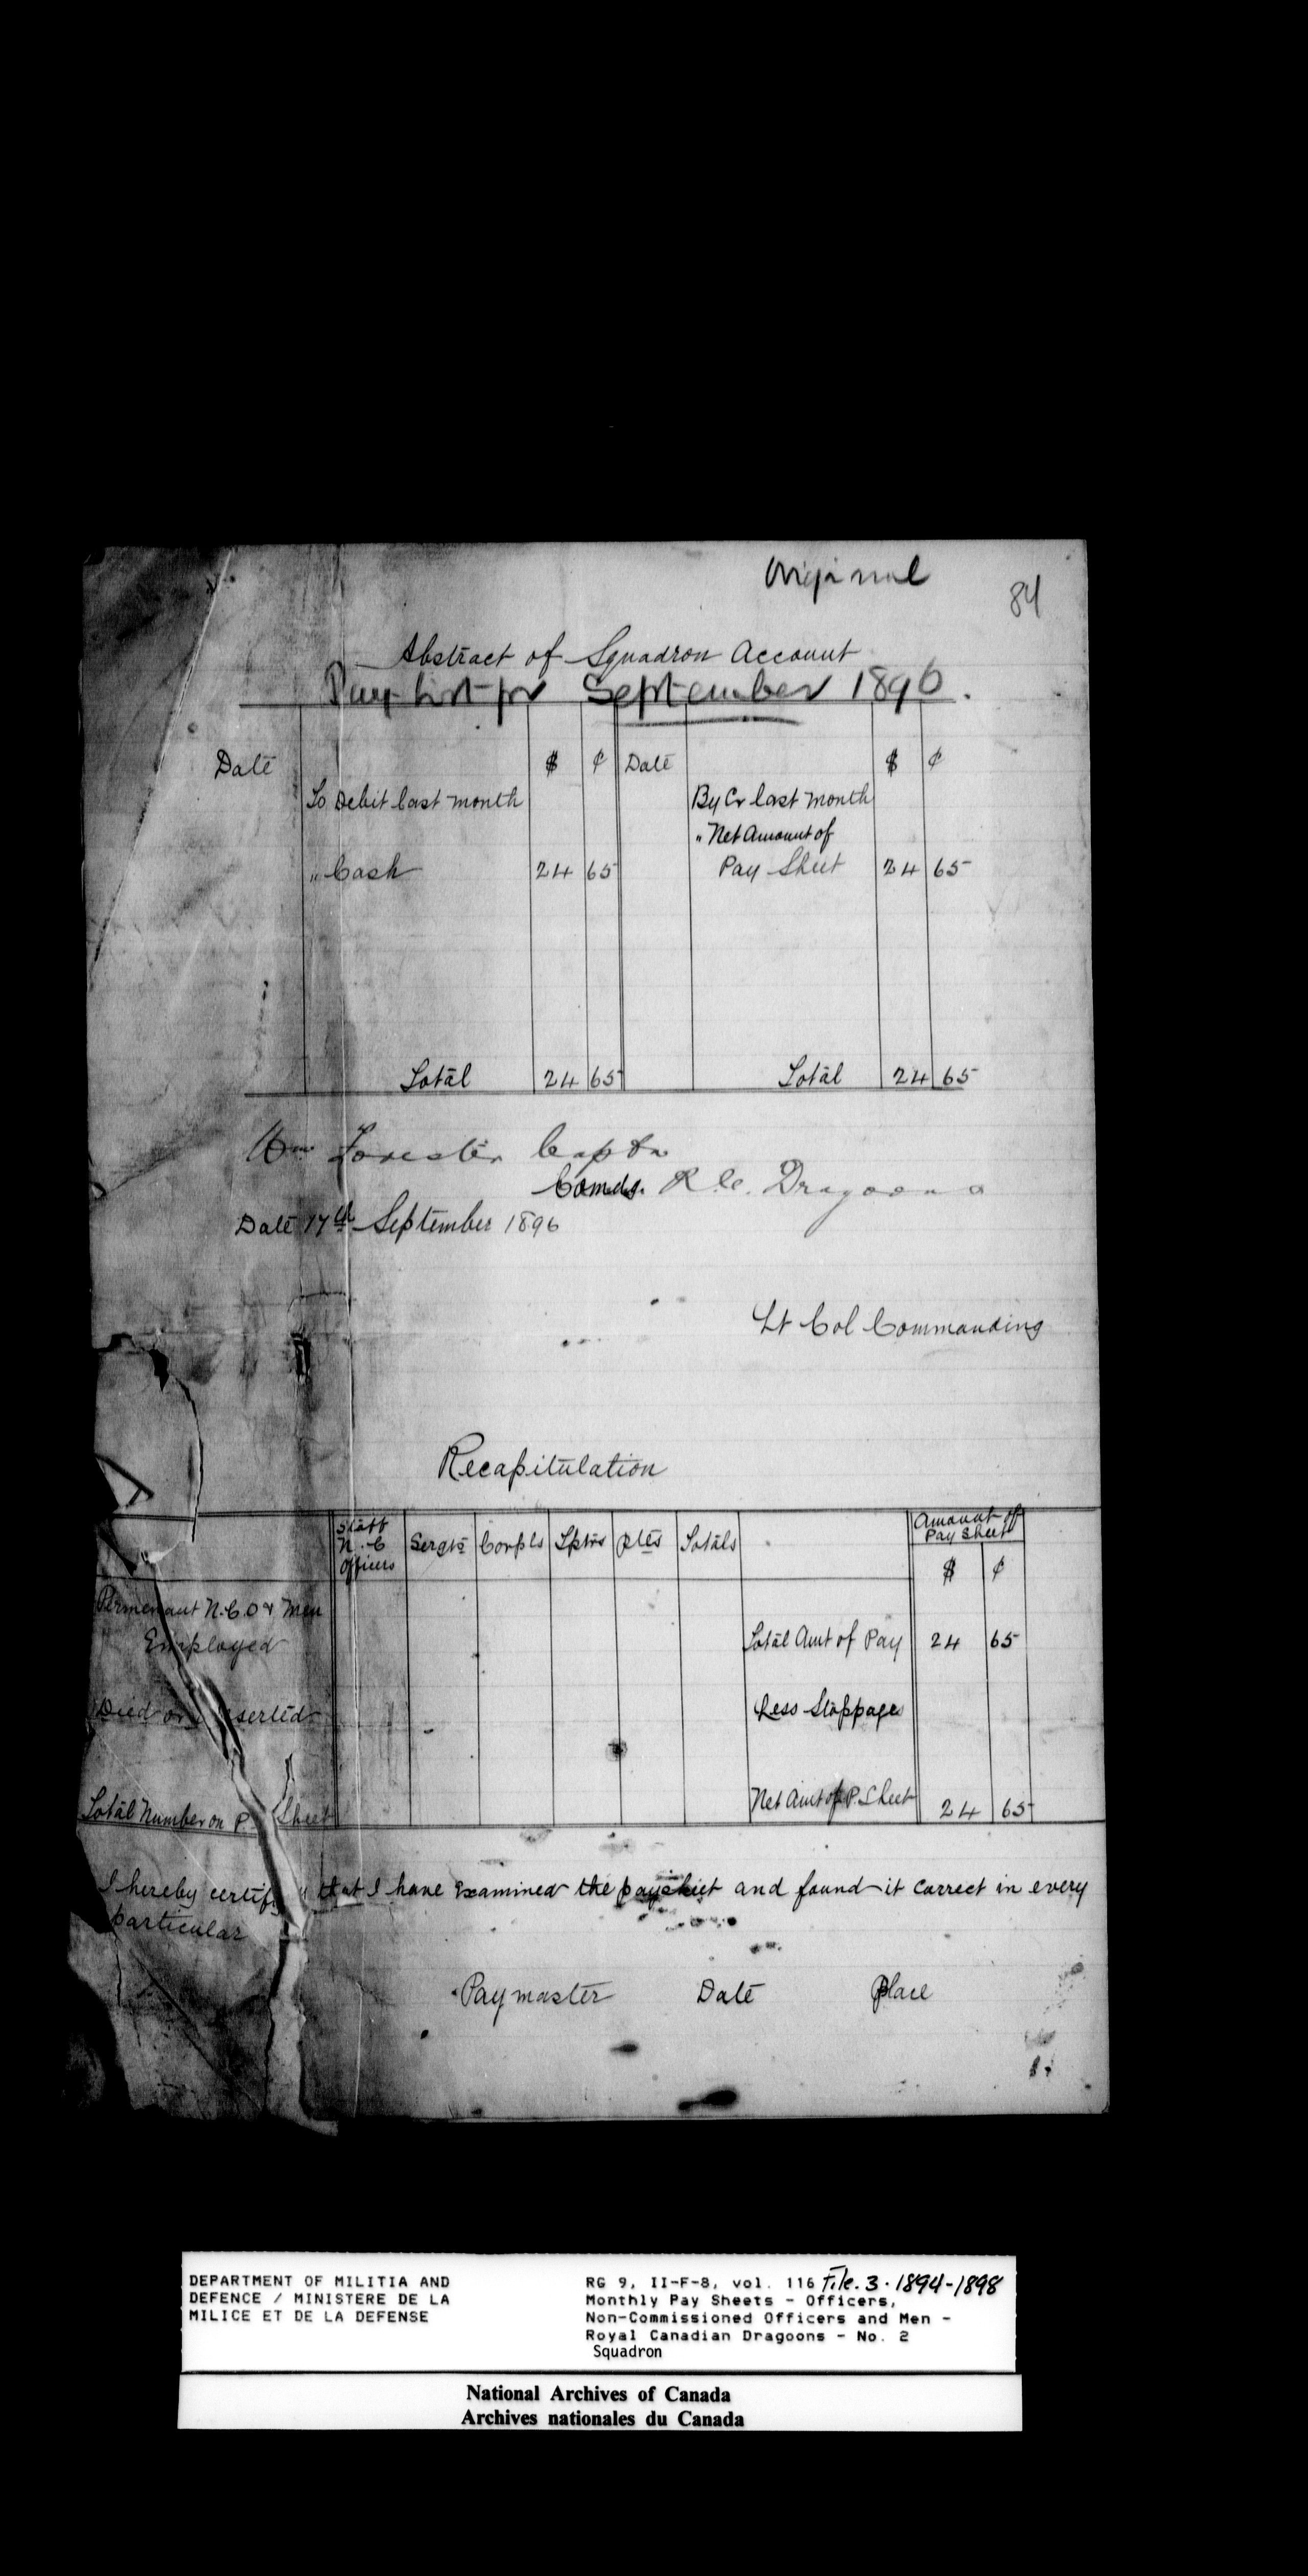 Original
84
Abstract of Squadron Account
Pay List for September 1896.
Date $ ¢ Date $ ¢
To Debit last month By Cr last month
" Net Amount of
" Cash 24 65 Pay Sheet 24 65
Total 24 65 Total 24 65
Wm Forester Captn
Comdg. R.C. Dragoons
Date 17th September 1896
Lt Col Commanding
Recapitulation
Staff N.C Officers Sergts Corpls Tptrs Ptes Totals Amount of Pay Sheet
$ ¢
Permenant N.C.O & Men
Employed Total Amt of Pay 24 65
Died or Deserted Less Stoppage
Total Number on P. Sheet Net Amt of P. Sheet 24 65
I hereby certify that I have Examined the paysheet and found it correct in every
particular
Paymaster Date Place
DEPARTMENT OF MILITIA AND
DEFENCE / MINISTERE DE LA
MILICE ET DE LA DEFENSE
RG 9, II-F-8, vol. 116 File. 3. 1894-1898
Monthly Pay Sheets - Officers,
Non-Commissioned Officers and Men -
Royal Canadian Dragoons - No. 2
Squadron
National Archives of Canada
Archives nationales du Canada